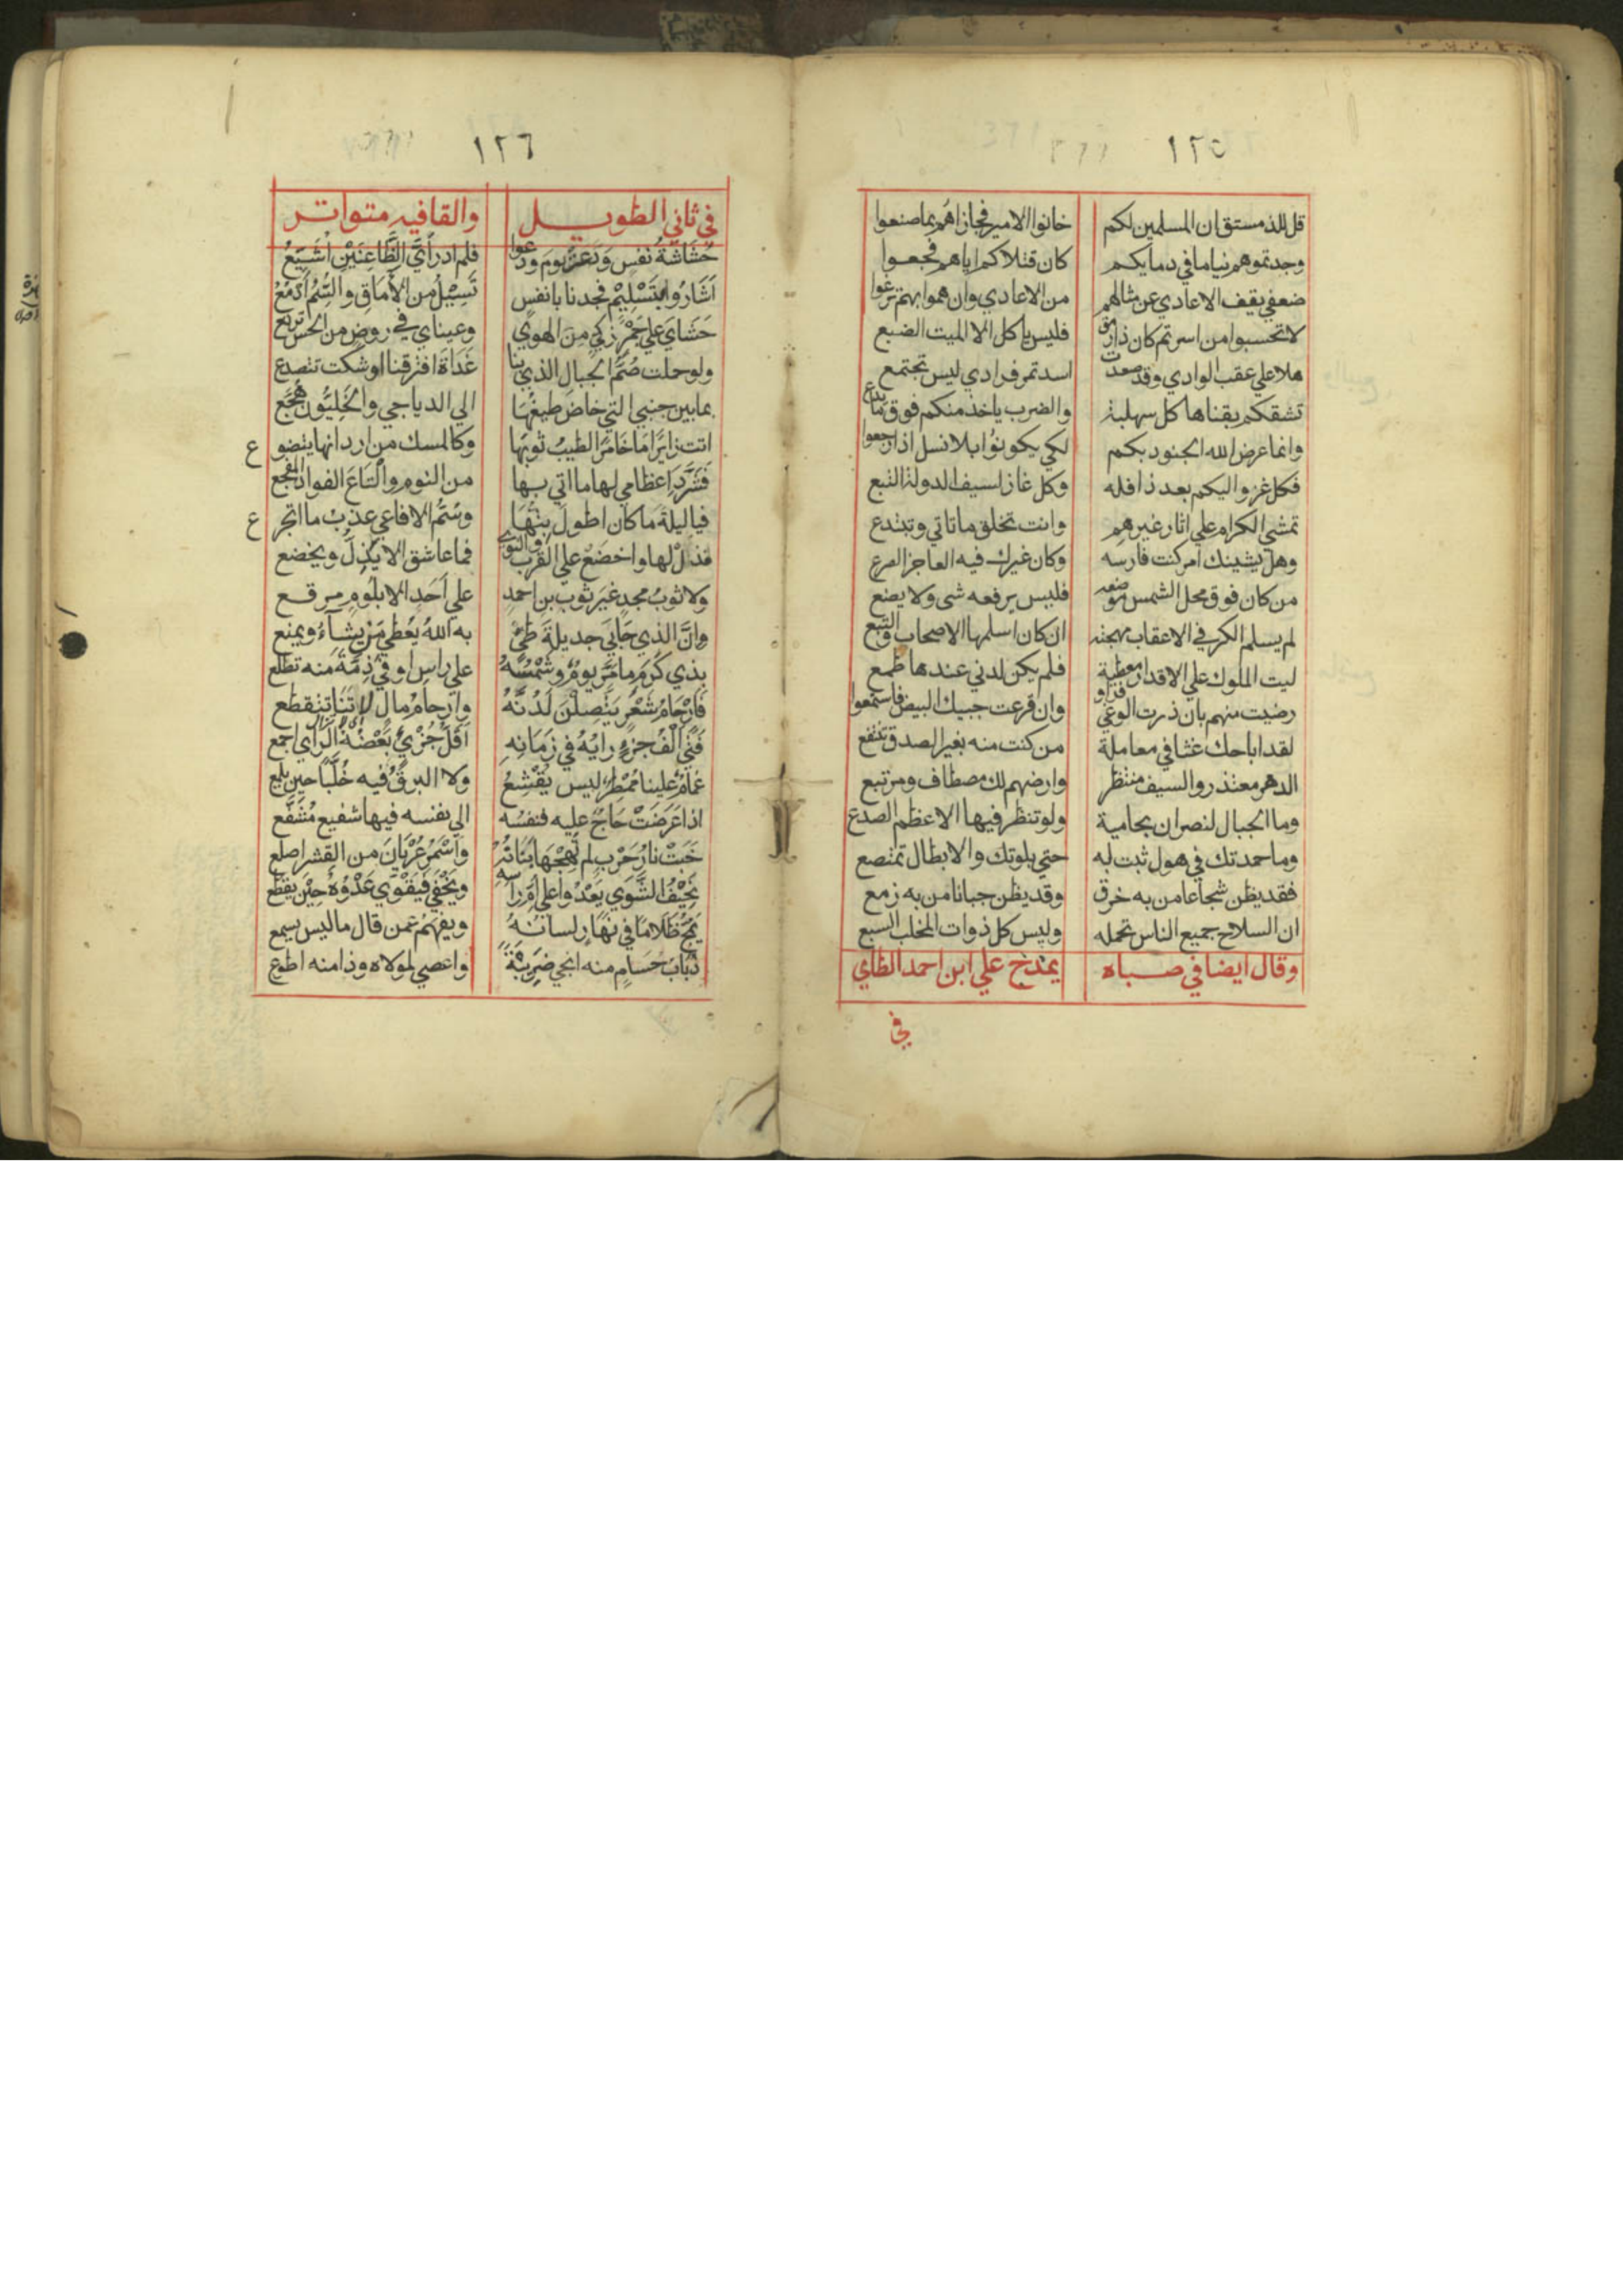 ١٢٥
قل للدمستق ان المسلمين لكم خانوا الامير فجازاهم بما صنعوا
وجدتموهم نياما في دمايكم كان قتلاكم اياهم فجعوا
ضعفي يقف الاعادي عن مثالهم من الاعادي وان هموا بهم نزعوا
لا تحسبوا من اسرتم كان ذا رمق فليس ياكل الا الميت الضبع
هلا علي عقب الوادي وقد صعدت اسد تمر فرادي ليس تجتمع
تشقكم بقناها كل سهلبة والضرب ياخذ منكم فوق ما يدع
وانما عرض الله الجنود بكم لكي يكونوا بلا نسل اذا رجعوا
فكل غزو اليكم بعد ذا فله وكل غاز لسيف الدولة التبع
تمشي الكرام علي اثار غيرهم وانت تخلق ما تاتي وتبتدع
وهل يشينك امر كنت فارسه وكان غيرك فيه العاجز الضرع
من كان فوق محل الشمس موضعه فليس يرفعه شي ولا يضع
لم يسلم الكر في الاعقاب مهجته ان كان اسلمها الاصحاب والتبع
ليت الملوك علي الاقدار معطية فلم يكن لدني عندها طمع
رضيت منهم بان ذرت الوغي فراو وان قرعت جبيك البيض فاستمعوا
لقد اباحك غشا في معاملة من كنت منه بغير الصدق تنتفع
الدهر معتذر والسيف منتظر وارضهم لك مصطاف ومرتبع
وما الجبال لنصران بحامية ولو تنظر فيها الاعظم الصدع
وما حمدتك في هول ثبت له حتي بلوتك والابطال تمتصع
فقد يظن شجاعا من به خرق وقد يظن جبانا من به زمع
ان السلاح جميع الناس تحمله وليس كل ذوات المخلب السبع
وقال ايضا في صباه يمدح علي ابن احمد الطاي
في
١٢٦
في ثاني الطويل والقافيه متواتر
حُشَاشَةُ نفسٍ وَدَّعَتْ يوم ودعوا فلم ادر أيَّ الظَّاعِنَيْنِ اُشَيِّعُ
اَشَارُوا بتَسْلِيْمٍ فجدنا بانفس تَسِيْلُ من الأمَاقِ والسُّمُ اَدْمُعُ
حَشَايَ علي جَمْرٍ زكيٍ مِنَ الهوي وعيناي في روضٍ من الحسن ترتع
ولو حلت صُمُّ الجبالِ الذي بنا غَدَاةَ افترقنا اوشكت تتصدع
بما بين جنبي التي خاضَ طيفُهَا الي الدياجي والخَلِيُّونَ هُجَّعُ
اتت زايرًا ما خَامَرَ الطيبُ ثوبَهَا وكالمسك من اردانها يتضوع
فَشَرَّدَ اعظامي لها ما اتي بها من النوم والْتَاعَ الفواد المفجع
فيا ليلةً ما كان اطولَ بِتُّهَا وسُمُّ الافاعي عذبُ ما اتجرع
فذلَّ لها واخضعْ علي القربِ والنوي فما عاشق الا يذلُّ ويخضع
ولا ثوبُ مجدٍ غيرَ ثوبِ بنِ احمدٍ علي اَحَدٍ الا بلُومٍ مرقع
وانَّ الذي حَابَي جديلةَ طيٍّ به اللهُ يُعْطِي مَنْ يشآءُ ويمنع
بذي كَرَمٍ ما مَرَّ يومٌ وشَمْسُهُ علي راسِ اوفي ذِمَّةً منه تطلع
فَارْحَامُ شَعْرٍ يَتَّصِلْنَ لَدُنَّهُ وارحامُ مالٍ لا تنا تتقطع
فَتًى اَلْفُ جزءٍ رايُهُ في زمَانِهِ اَقَلُّ جُزَيٍّ بَعْضُهُ الرَّاي اجمع
غمامٌ علينا مُمْطِرٌ ليس يُقْشِعُ ولا البرقُ فيه خُلَّبًا حين يلمع
اذا عَرَضَتْ حَاجٌ عليه فنفسُه الي نفسه فيها شفيع مُشَفَّع
خَبَتْ نارُ حَرْبٍ لم تُهِجْهَا بَنَانُهُ واَسْمَرُ عُرْيَانَ من القشر اصلع
نَحِيْفُ الشَّوَي يَعْدُوا علي اُمِّ رأسه ويَحْفَي فيَقْوَي عَدْوُهُ حِيْنَ يقطع
يَمُجُّ ظلامًا في نهارٍ لسانُهُ ويفهمُ عمن قال ما ليس يسمع
ذُبَابُ حُسَامٍ منه انجي ضَرِيْبَةً واعصي لمولاه وذا منه اطوع